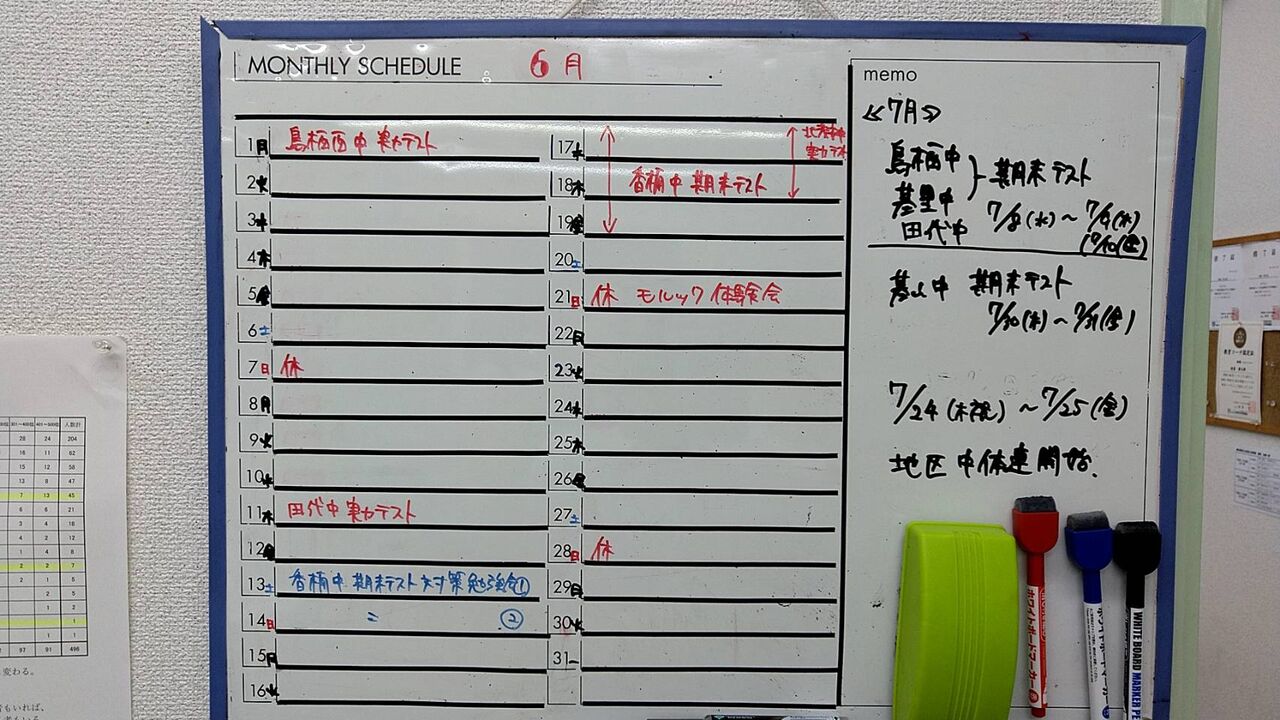 MONTHLY SCHEDULE 6月
1月 鳥栖西中 実力テスト
2火
3水
4木
5金
6土
7日 休
8月
9火
10水
11木 田代中 実力テスト
12金
13土 香楠中 期末テスト対策勉強会①
14日 〃 ②
15月
16火
17水
北茂安中
実力テスト
18木 香楠中 期末テスト
19金
20土
21日 休 モルック体験会
22月
23火
24水
25木
26金
27土
28日 休
29月
30火
31
memo
≪7月≫
鳥栖中
基里中
田代中
期末テスト
7/8(水)〜7/9(木)
(7/10(金))
基山中 期末テスト
7/30(木)〜7/31(金)
7/24(木祝)〜7/25(金)
地区中体連開始.
301〜400位 401〜500位 人数計
28 24 204
16 11 62
15 12 58
13 8 47
7 13 45
6 6 21
3 4 18
1 4 8
2 2 7
1 2 5
2 2
1 1
1
1 1
91 97 496
変わる。
者もいれば、
ホワイトボードマーカー
WHITE BOARD MARKER PE